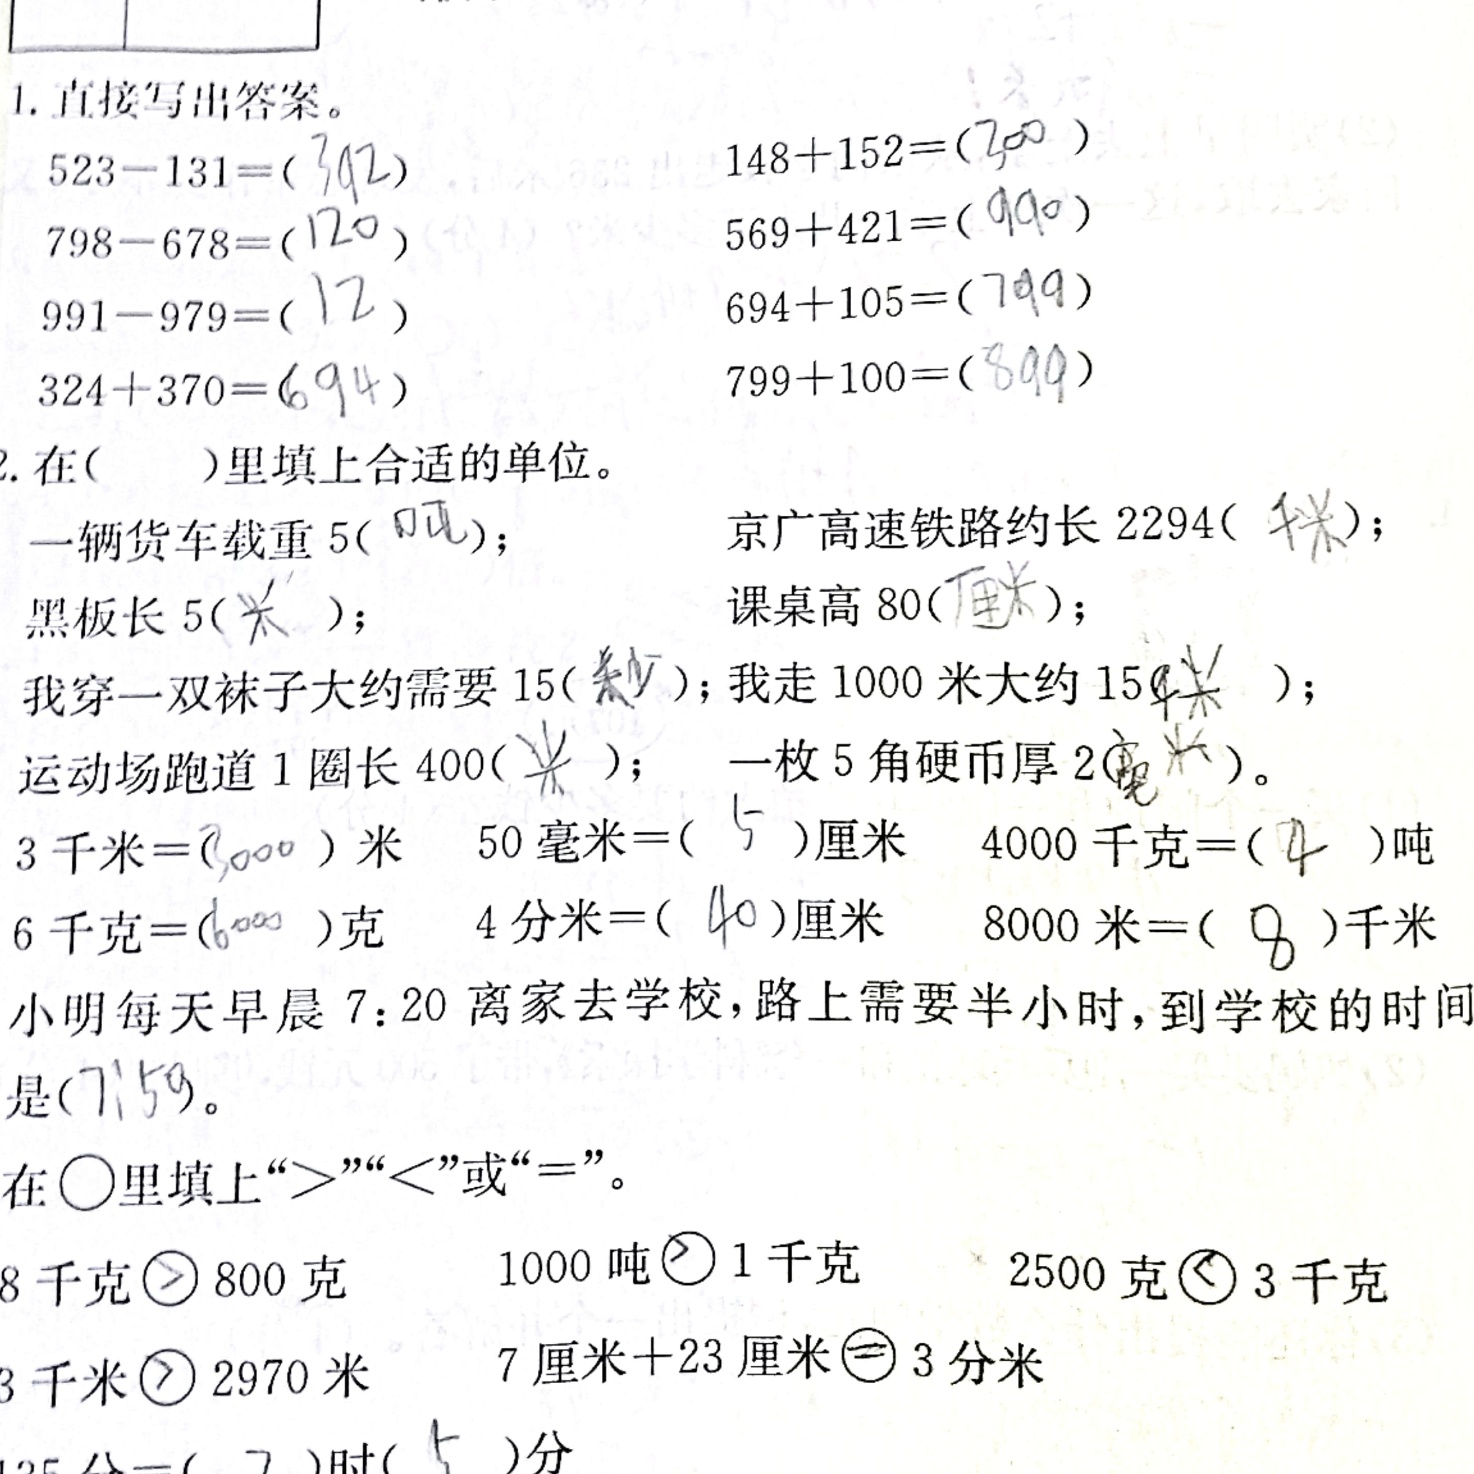 1. 直接写出答案。
523－131＝(392) 148＋152＝(300)
798－678＝(120) 569＋421＝(990)
991－979＝(12) 694＋105＝(799)
324＋370＝(694) 799＋100＝(899)
2. 在( )里填上合适的单位。
一辆货车载重 5(吨)； 京广高速铁路约长 2294(千米)；
黑板长 5(米)； 课桌高 80(厘米)；
我穿一双袜子大约需要 15(秒)；我走 1000 米大约 15(千米)；
运动场跑道 1 圈长 400(米)； 一枚 5 角硬币厚 2(毫米)。
3 千米＝(3000)米 50 毫米＝(5)厘米 4000 千克＝(4)吨
6 千克＝(6000)克 4 分米＝(40)厘米 8000 米＝(8)千米
小明每天早晨 7:20 离家去学校，路上需要半小时，到学校的时间
是(7:50)。
在○里填上“＞”“＜”或“＝”。
8 千克＞800 克 1000 吨＞1 千克 2500 克＜3 千克
3 千米＞2970 米 7 厘米＋23 厘米＝3 分米
分＝( )时(5)分